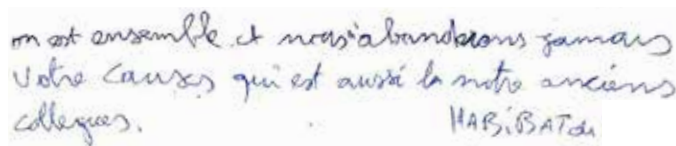 on est ensemble et nous abandonons jamais
Votre causes qui est aussi la notre anciens
collegues. HABiBATou